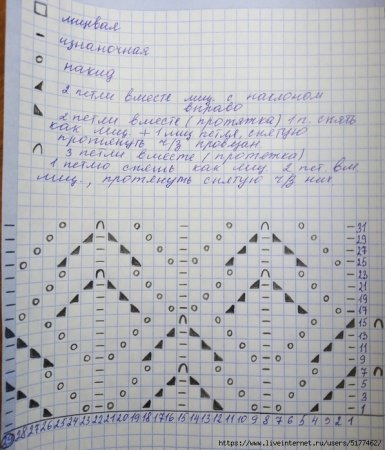 лицевая
изнаночная
накид
2 петли вместе лиц. с наклоном
вправо
2 петли вместе (протяжка) 1 п. снять
как лиц. + 1 лиц петля, снятую
протянуть ч/з провязан
3 петли вместе (протяжка)
1 петлю снять как лиц 2 пет. вм
лиц., протянуть снятую ч/з них
31
29
27
25
23
21
19
17
15
13
11
9
7
5
3
1
29 28 27 26 25 24 23 22 21 20 19 18 17 16 15 14 13 12 11 10 9 8 7 6 5 4 3 2 1
https://www.liveinternet.ru/users/5177462/